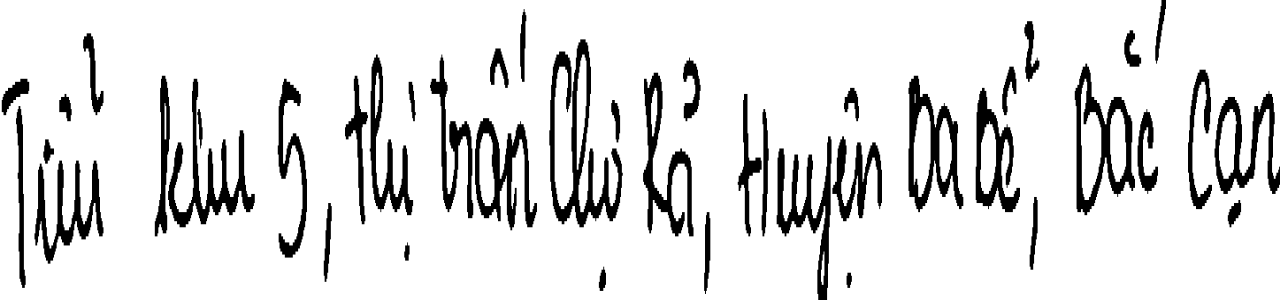 Tiểu khu 5, thị trấn Chợ Rã, Huyện Ba Bể, Bắc Cạn